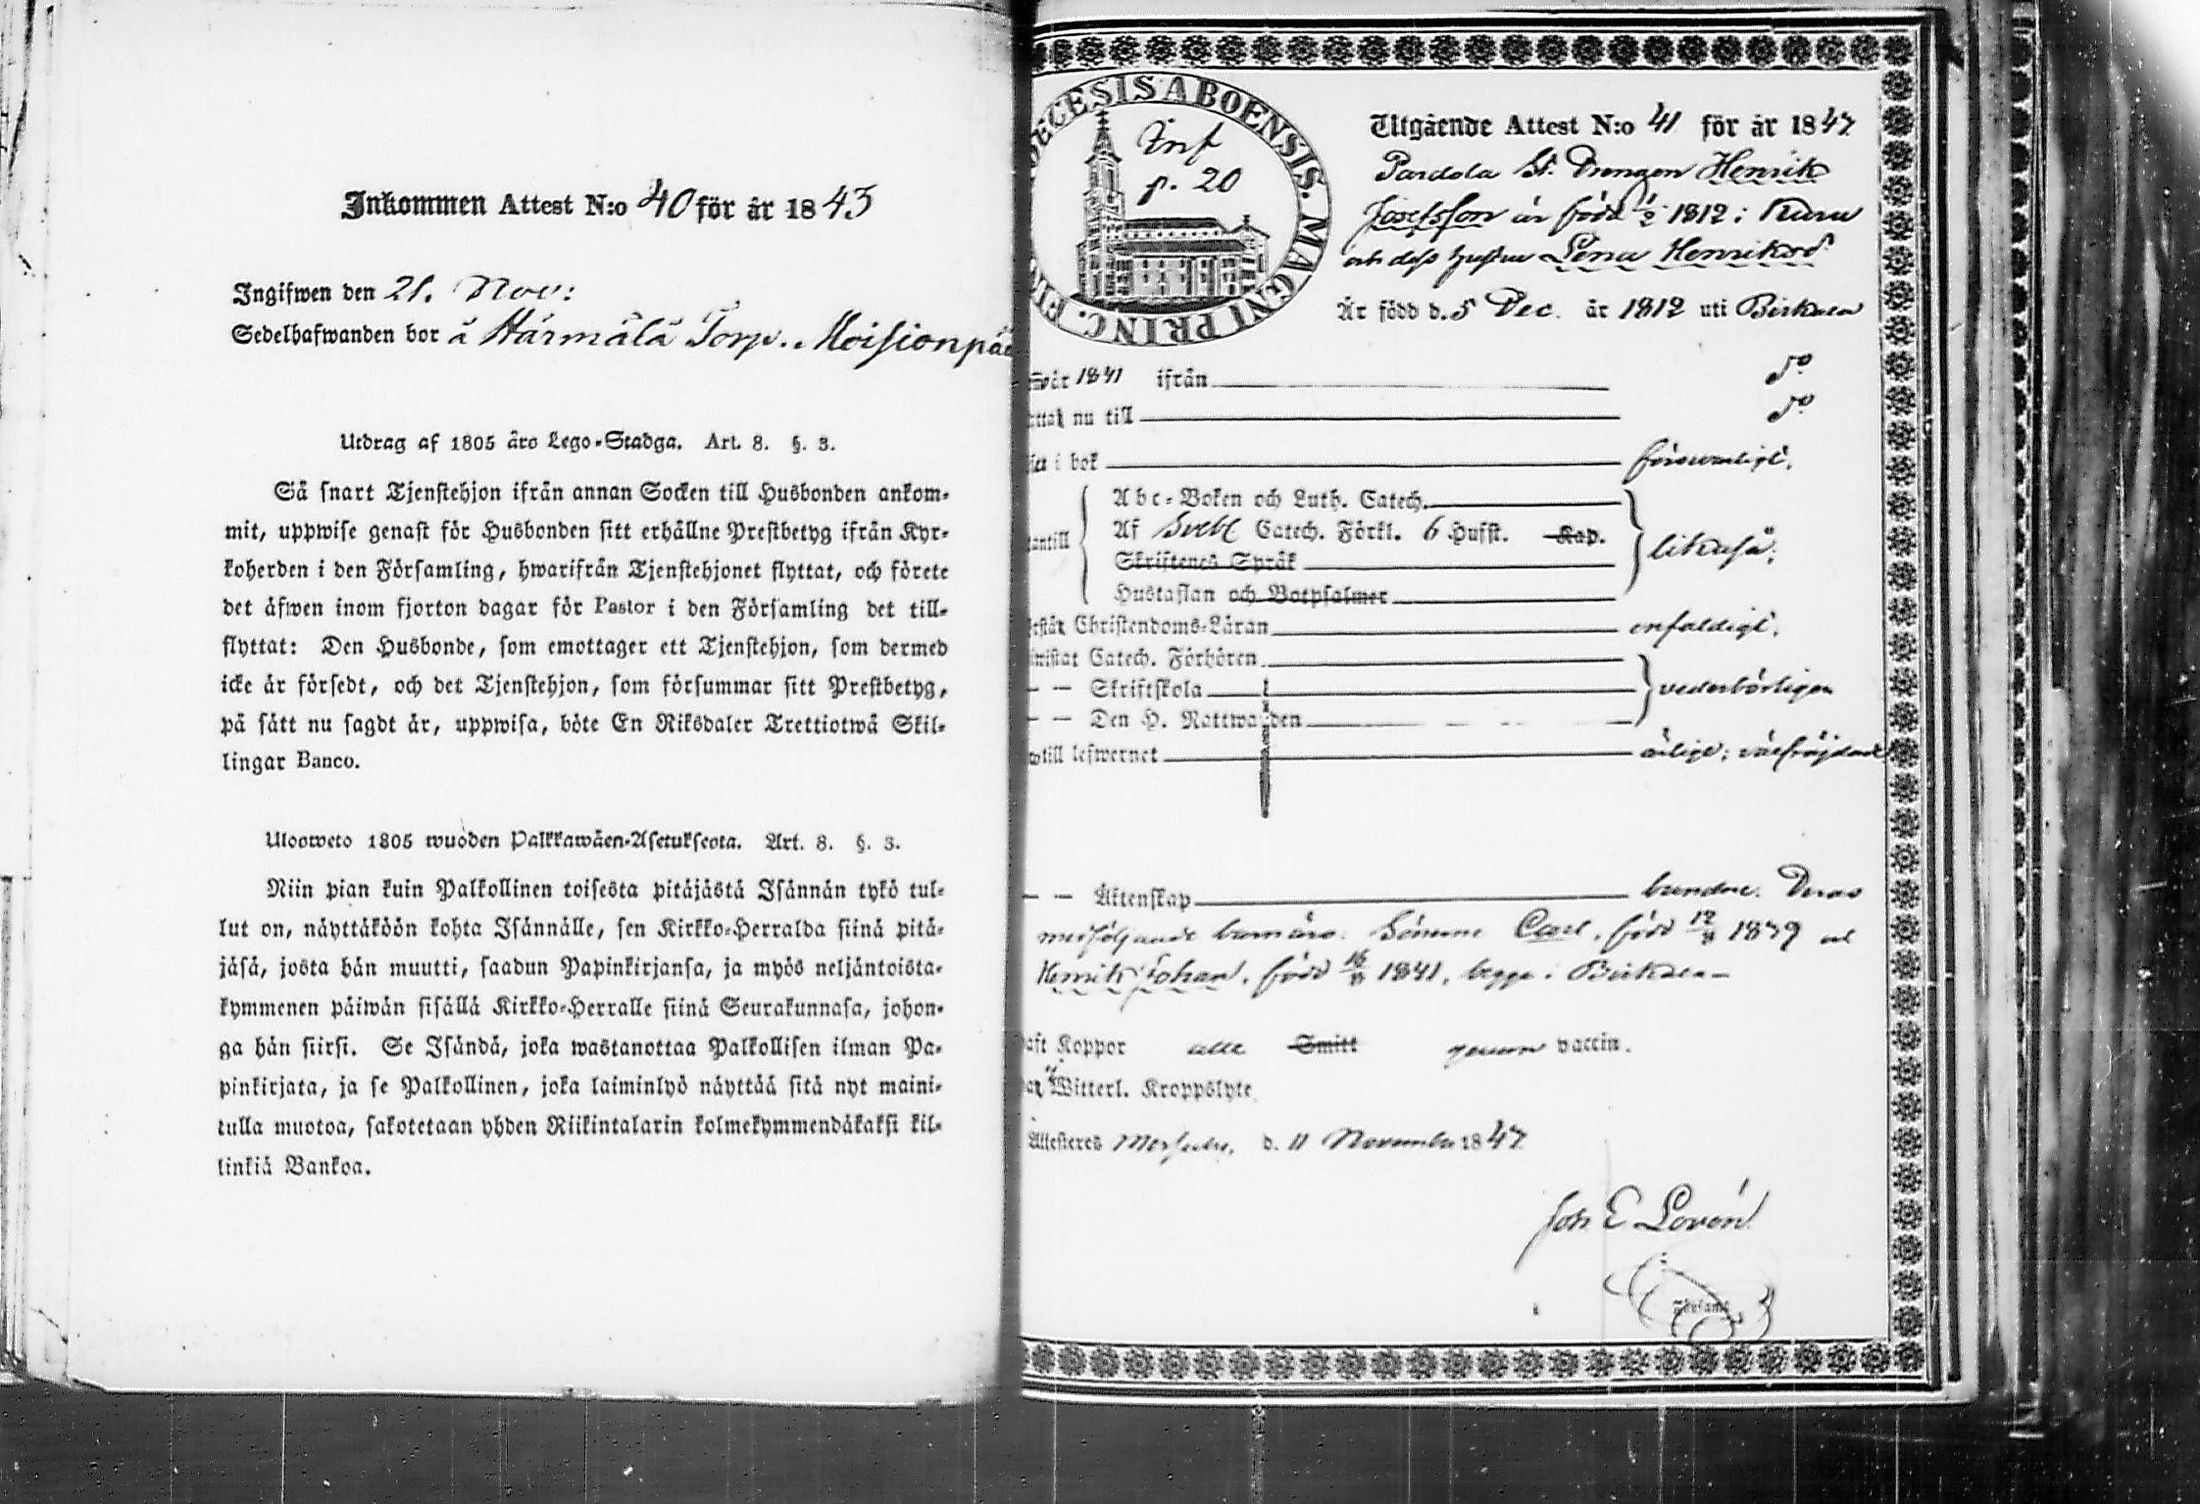 Inkommen Attest N:o 40 för år 1843
Ingifwen den 21. Nov:
Sedelhafwanden bor å Härmälä Torp. Moisionpää
Utdrag af 1805 års Lego-Stadga. Art. 8. §. 3.
Så snart Tjenstehjon ifrån annan Socken till Husbonden ankom-
mit, uppwise genast för Husbonden sitt erhållne Prestbetyg ifrån Kyr-
koherden i den Församling, hwarifrån Tjenstehjonet flyttat, och förete
det äfwen inom fjorton dagar för Pastor i den Församling det till-
flyttat: Den Husbonde, som emottager ett Tjenstehjon, som dermed
icke är försedt, och det Tjenstehjon, som försummar sitt Prestbetyg,
på sätt nu sagdt är, uppwisa, böte En Riksdaler Trettiotwå Skil-
lingar Banco.
Ulosweto 1805 wuoden Palkkawäen-Asetuksesta. Art. 8. §. 3.
Niin pian kuin Palkollinen toisesta pitäjästä Isännän tykö tul-
lut on, näyttäköön kohta Isännälle, sen Kirkko-Herralda siinä pitä-
jäsä, josta hän muutti, saadun Papinkirjansa, ja myös neljäntoista-
kymmenen päiwän sisällä Kirkko-Herralle siinä Seurakunnasa, johon-
ga hän siirsi. Se Isändä, joka wastanottaa Palkollisen ilman Pa-
pinkirjata, ja se Palkollinen, joka laiminlyö näyttää sitä nyt maini-
tulla muotoa, sakotetaan yhden Riikintalarin kolmekymmendäkaksi kil-
linkiä Bankoa.
ECESIS ABOENSIS. MAGNI PRINC. FI
Inf
p. 20
Utgående Attest N:o 41 för år 1847
Pardola St. Drengen Henrik
Josefsson är född 1/2 1812 i Kuru
och dess hustru Lena Henriksd.
Är född d. 5 Dec. år 1812 uti Birkala
1841 ifrån do
nu till do
i bok försvarligt.
Abc-Boken och Luth. Catech.
Af Sveb. Catech. Förkl. 6 Hufst. Kap.
Skriftenes Språk
likaså.
Hustaflan och Botpsalmer
Christendoms-Läran enfaldigt.
Catech. Förhören
— — Skriftskola vederbörligen
— — Den H. Nattwarden
till lefwernet ärlige; välfräjdade
— — Äktenskap bundne. Deras
medföljande barn äro: Sönerne Carl, född 12/8 1839 och
Henrik Johan, född 16/8 1841, begge i Birkala –
Koppor alla Smitt genom vaccin.
Witterl. Kroppslyte
Attesteres d. 11 November 1847
Joh E Lovén